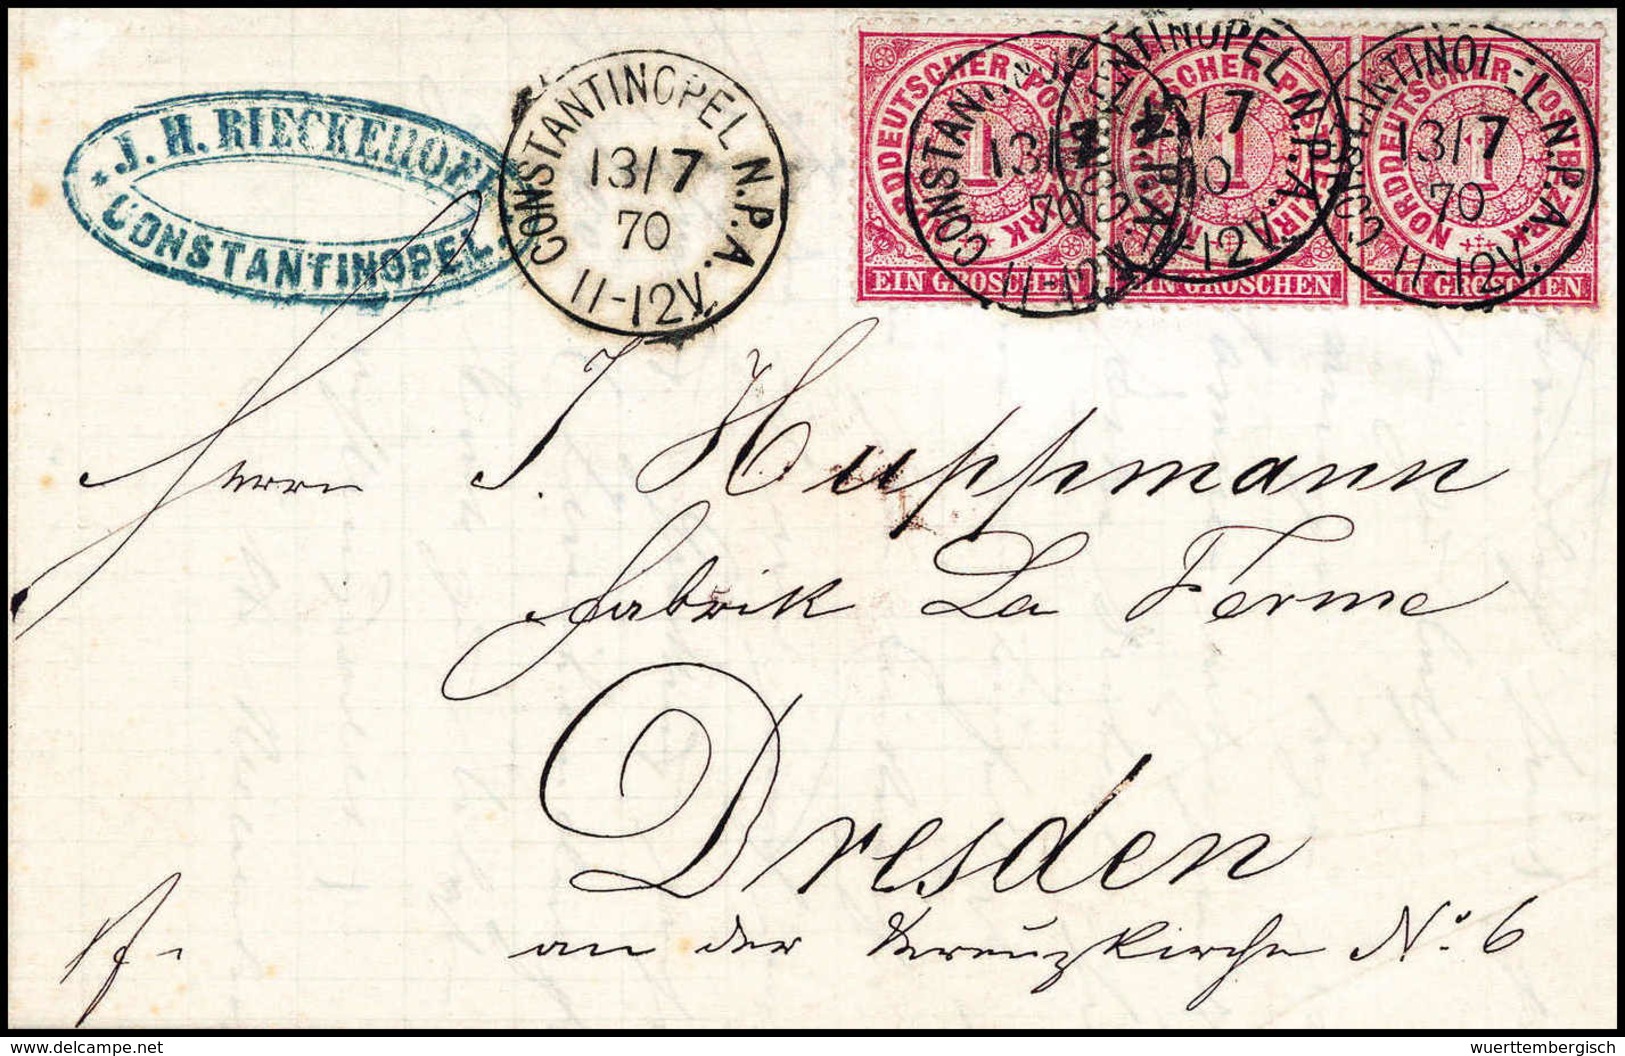 J. H. RIECKEHOFF
CONSTANTINOPEL.
CONSTANTINOPEL N.P.A.
13/7
70
11-12V.
NORDDEUTSCHER POSTBEZIRK
1
EIN GROSCHEN
CONSTANTINOPEL N.P.A.
13/7
70
11-12V.
NORDDEUTSCHER POSTBEZIRK
1
EIN GROSCHEN
CONSTANTINOPEL N.P.A.
13/7
70
11-12V.
NORDDEUTSCHER POSTBEZIRK
1
EIN GROSCHEN
CONSTANTINOPEL N.P.A.
13/7
70
11-12V.
Herrn J. Huppmann
Fabrik La Ferme
Dresden
an der Kreuzkirche No. 6
delcampe.net
wuerttembergisch